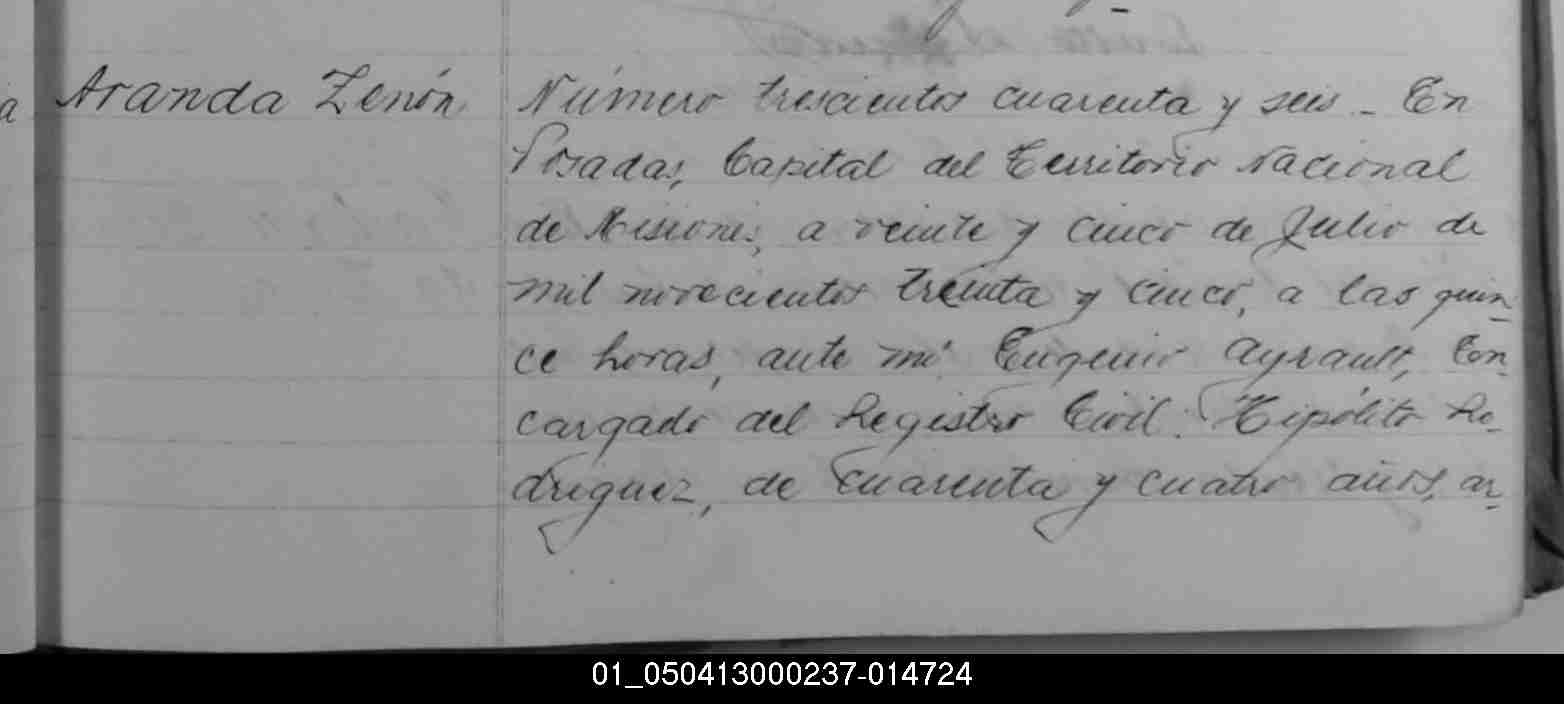 Aranda Zenón
Número trescientos cuarenta y seis - En
Posadas, Capital del Territorio Nacional
de Misiones, a veinte y cinco de Julio de
mil novecientos treinta y cinco, a las quin
ce horas, ante mi Eugenio Ayrault, En
cargado del Registro Civil. Hipólito Ro
driguez, de cuarenta y cuatro años, ar
01_050413000237-014724